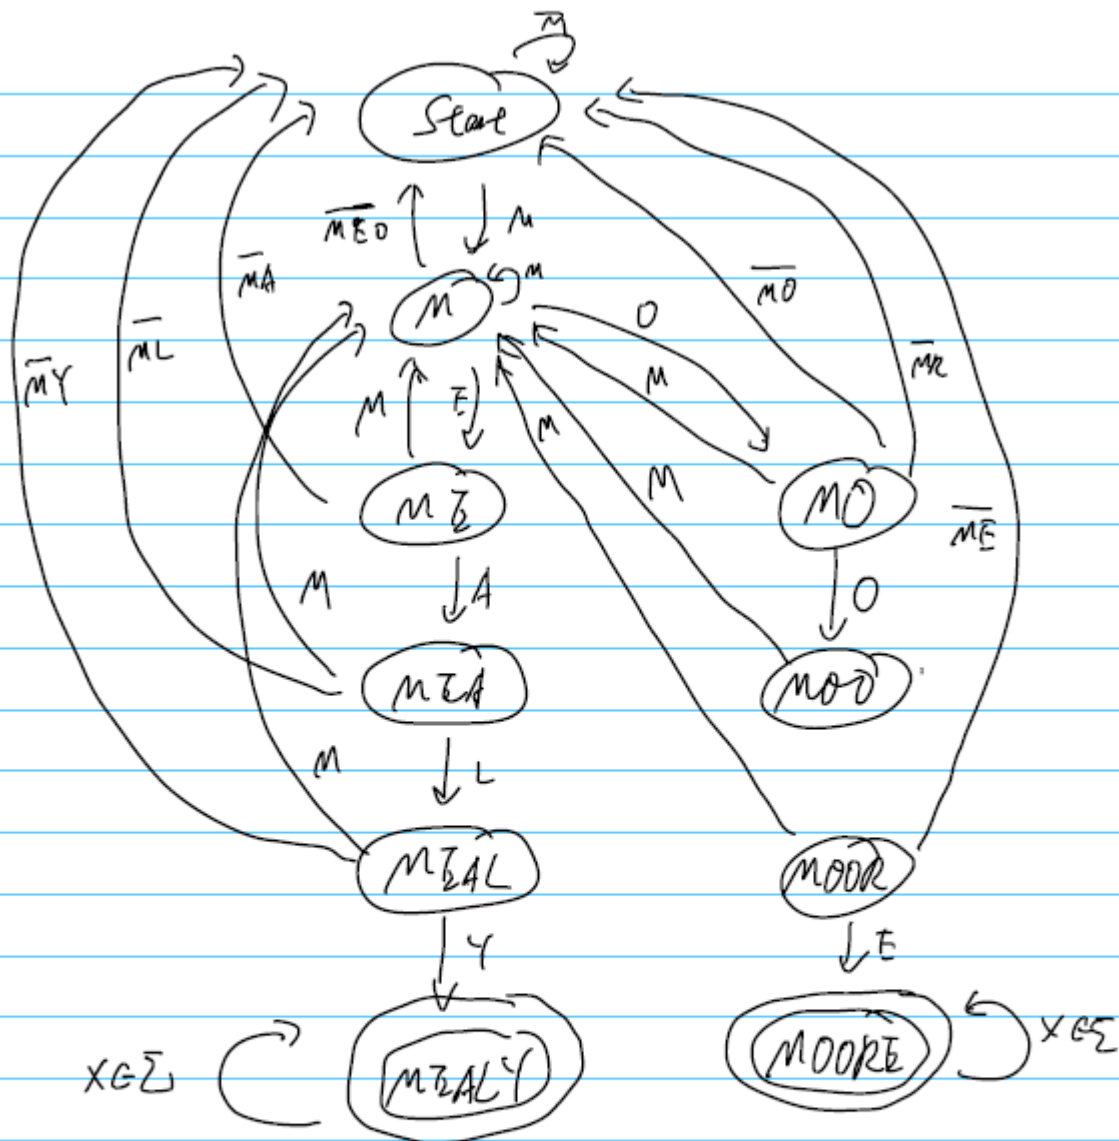 M̅
Start
M̅E̅O̅ M
M̅A̅ M M
M̅L̅ O M̅O̅
M̅Y̅ M E M M M̅R̅
ME M MO M̅E̅
M A O
MEA MOO
M L
MEAL MOOR
Y E
X∈Σ MEALY MOORE X∈Σ